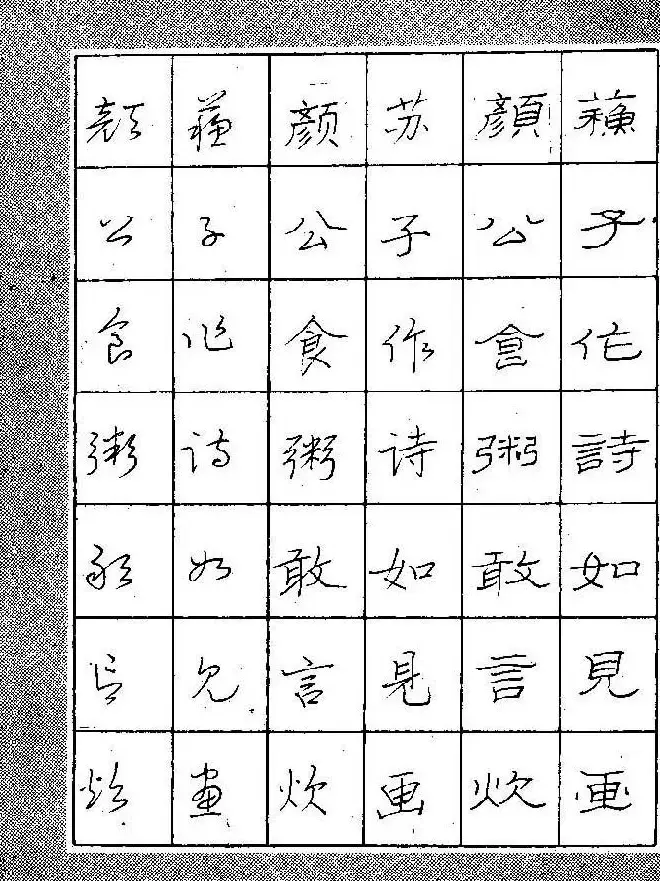 蘇子作詩如見画
顏公食粥敢言炊
苏子作诗如見画
颜公食粥敢言炊
蘇子作诗如见畫
颜公食粥敢言炊